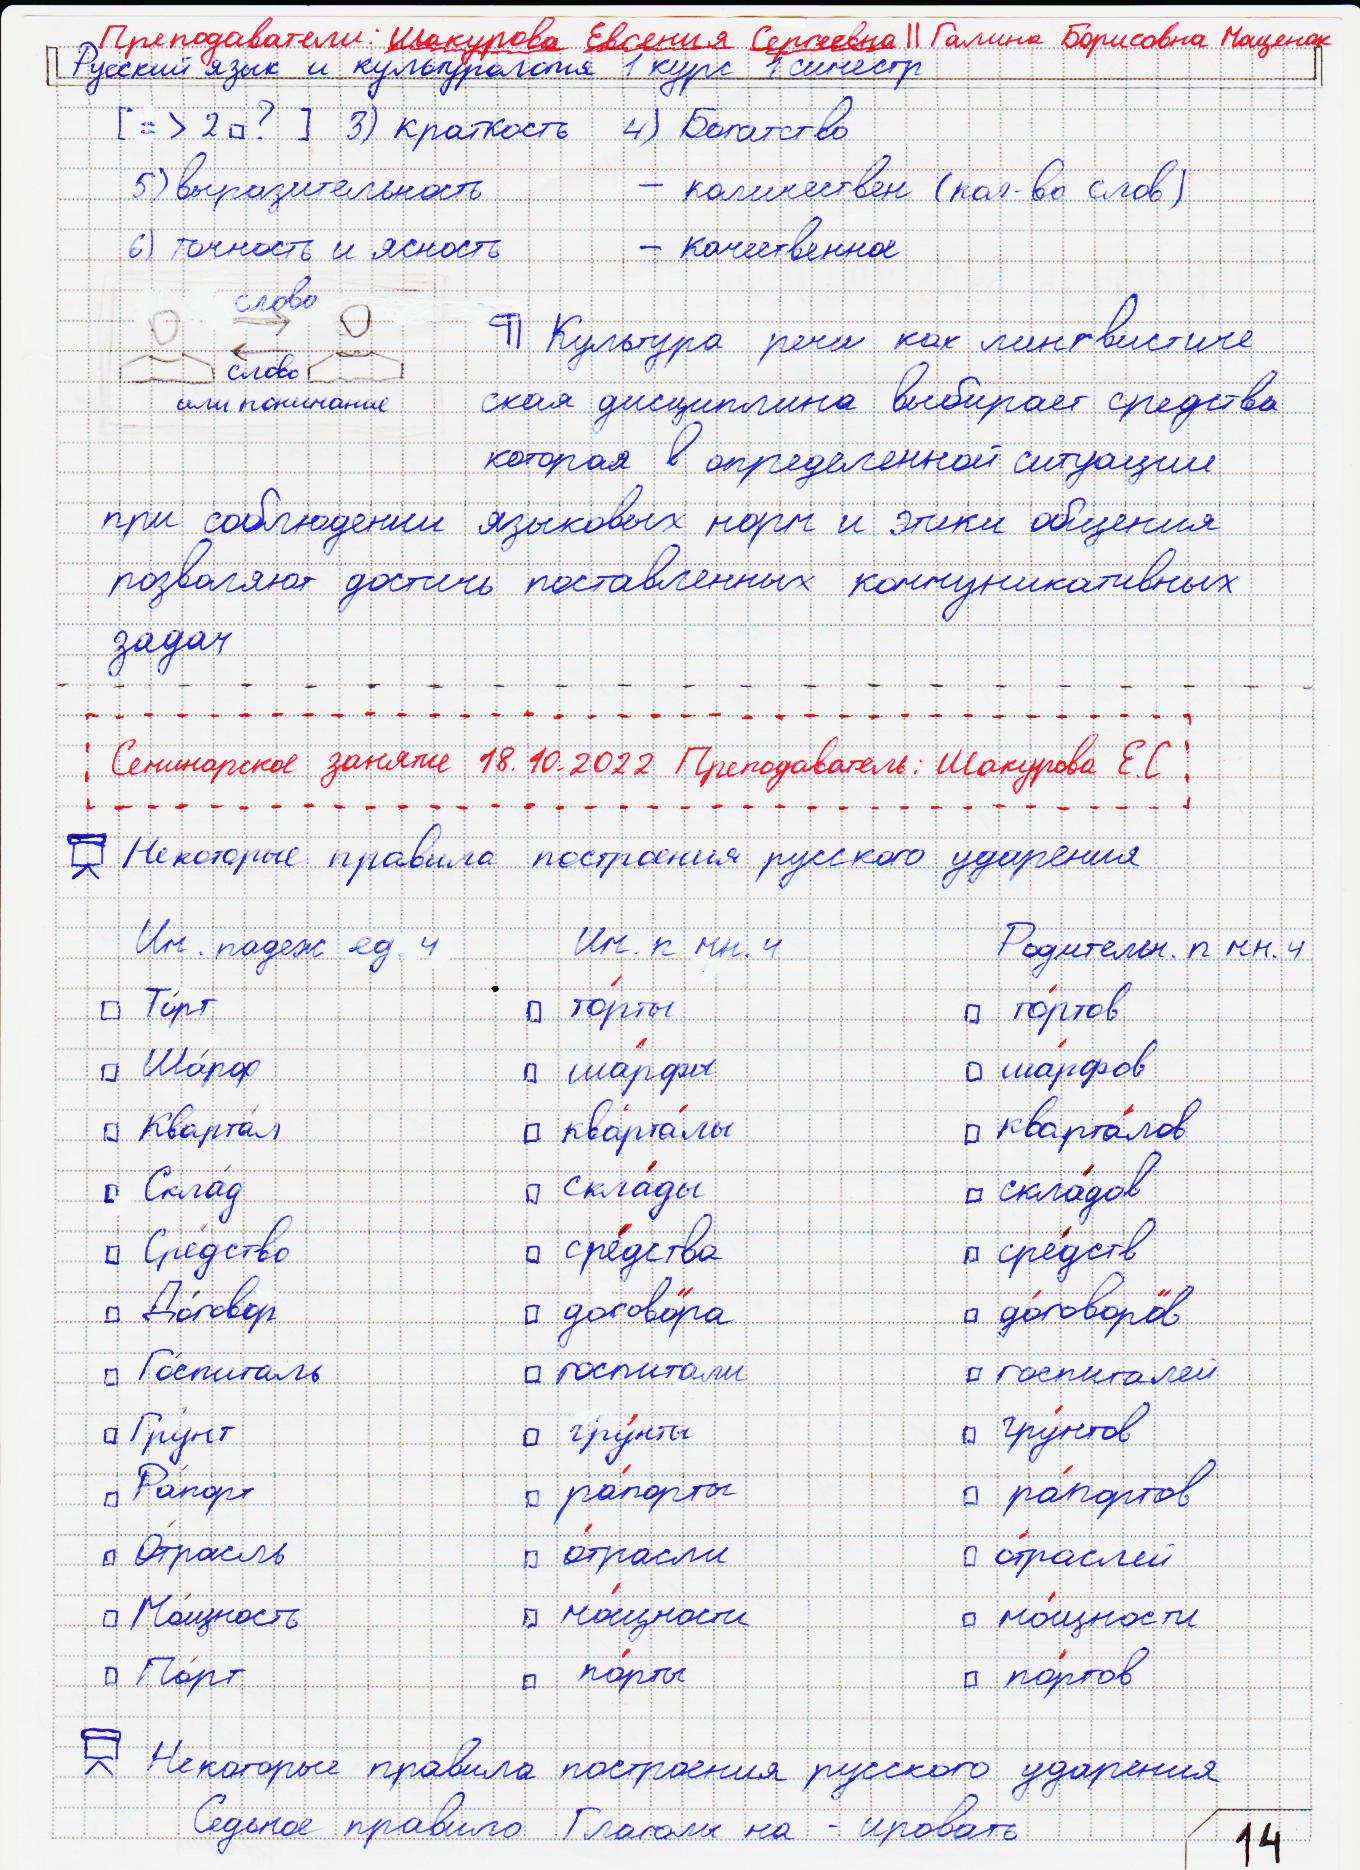 Преподаватели: Шакурова Евгения Сергеевна || Галина Борисовна Маценак
Русский язык и культурология 1 курс 1 симестр
[ => 2 □? ] 3) краткость 4) Богатство
5) выразительность – количествен (кол-во слов)
6) точность и ясность – качественное
слово
слово
или понимание
¶ Культура речи как лингвистиче
ская дисциплина выбирает средства
которая в определенной ситуации
при соблюдении языковых норм и этики общения
позволяют достичь поставленных коммуникативных
задач
Семинарское занятие 18.10.2022 Преподаватель: Шакурова Е.С
Некоторые правила построения русского ударения
Им. падеж ед. ч Им. п мн. ч Родительн. п мн. ч
□ То́рт □ то́рты □ то́ртов
□ Ша́рф □ ша́рфы □ ша́рфов
□ Кварта́л □ кварта́лы □ кварта́лов
□ Скла́д □ скла́ды □ скла́дов
□ Сре́дство □ сре́дства □ сре́дств
□ До́говор □ догово̋ра □ до́говоро̋в
□ Го́спиталь □ госпитали □ госпиталей
□ Гру́нт □ гру́нты □ гру́нтов
□ Ра́порт □ ра́порты □ ра́портов
□ О́трасль □ о́трасли □ о́траслей
□ Мо́щность □ мо́щности □ мо́щности
□ По́рт □ по́рты □ по́ртов
Некоторые правила построения русского ударения
Седьмое правило Глаголы на - ировать
14